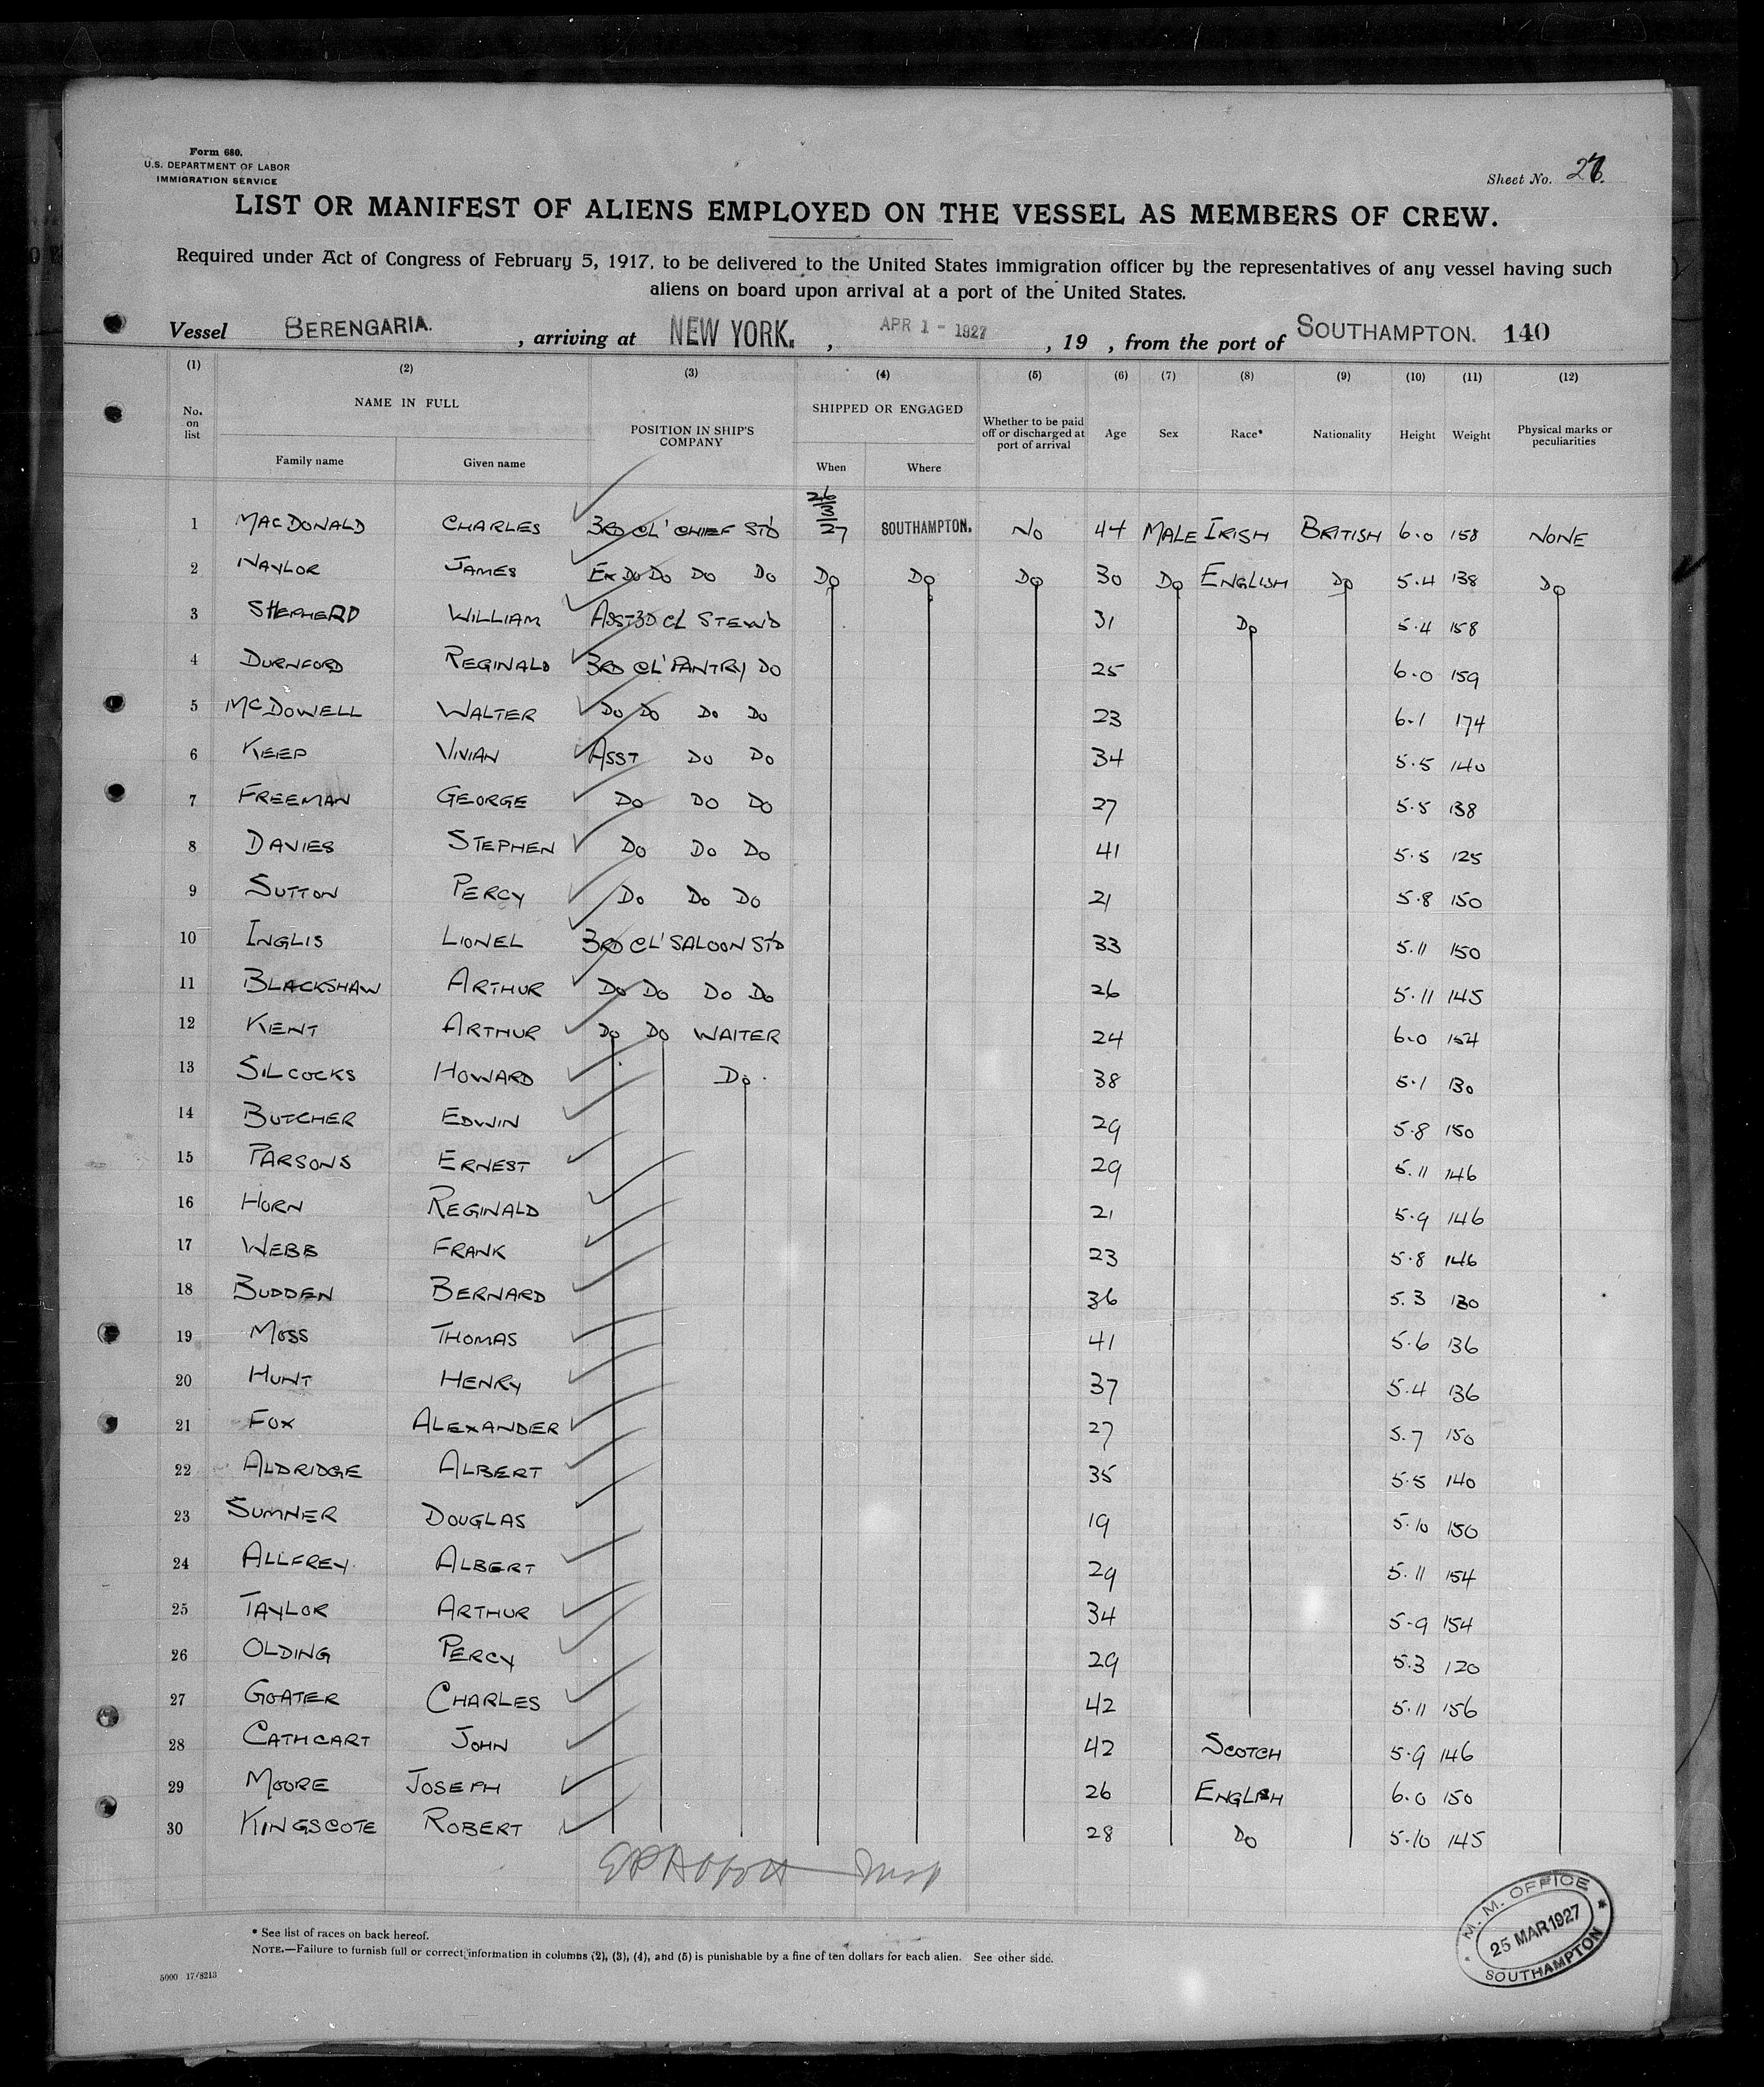 Form 680.
U.S. DEPARTMENT OF LABOR
IMMIGRATION SERVICE
Sheet No.
LIST OR MANIFEST OF ALIENS EMPLOYED ON THE VESSEL AS MEMBERS OF CREW.
Required under Act of Congress of February 5, 1917, to be delivered to the United States immigration officer by the representatives of any vessel having such
aliens on board upon arrival at a port of the United States.
Vessel BERENGARIA. , arriving at NEW YORK. , APR 1 - 1927 , 19 , from the port of SOUTHAMPTON. 140
(1) (2) (3) (4) (5) (6) (7) (8) (9) (10) (11) (12)
No. on list NAME IN FULL Family name Given name POSITION IN SHIP'S COMPANY SHIPPED OR ENGAGED When Where Whether to be paid off or discharged at port of arrival Age Sex Race* Nationality Height Weight Physical marks or peculiarities
1 MACDONALD CHARLES 3RD CL' CHIEF STD 26/3/27 SOUTHAMPTON. NO 44 MALE IRISH BRITISH 6.0 158 NONE
2 NAYLOR JAMES EX DO DO DO DO DO DO DO 30 DO ENGLISH DO 5.4 138 DO
3 SHEPHERD WILLIAM ASST 3D CL STEWD 31 DO 5.4 158
4 DURNFORD REGINALD 3RD CL' PANTRY DO 25 6.0 159
5 MCDOWELL WALTER DO DO DO DO 23 6.1 174
6 KEEP VIVIAN ASST DO DO 34 5.5 140
7 FREEMAN GEORGE DO DO DO 27 5.5 138
8 DAVIES STEPHEN DO DO DO 41 5.5 125
9 SUTTON PERCY DO DO DO 21 5.8 150
10 INGLIS LIONEL 3RD CL' SALOON STD 33 5.11 150
11 BLACKSHAW ARTHUR DO DO DO DO 26 5.11 145
12 KENT ARTHUR DO DO WAITER 24 6.0 154
13 SILCOCKS HOWARD DO. 38 5.1 130
14 BUTCHER EDWIN 29 5.8 150
15 PARSONS ERNEST 29 5.11 146
16 HORN REGINALD 21 5.9 146
17 WEBB FRANK 23 5.8 146
18 BUDDEN BERNARD 36 5.3 130
19 MOSS THOMAS 41 5.6 136
20 HUNT HENRY 37 5.4 136
21 FOX ALEXANDER 27 5.7 150
22 ALDRIDGE ALBERT 35 5.5 140
23 SUMNER DOUGLAS 19 5.10 150
24 ALLFREY ALBERT 29 5.11 154
25 TAYLOR ARTHUR 34 5.9 154
26 OLDING PERCY 29 5.3 120
27 GOATER CHARLES 42 5.11 156
28 CATHCART JOHN 42 SCOTCH 5.9 146
29 MOORE JOSEPH 26 ENGLISH 6.0 150
30 KINGSCOTE ROBERT 28 DO 5.10 145
* See list of races on back hereof.
NOTE.—Failure to furnish full or correct information in columns (2), (3), (4), and (5) is punishable by a fine of ten dollars for each alien. See other side.
5000 17/8213
M. M. OFFICE
25 MAR 1927
SOUTHAMPTON